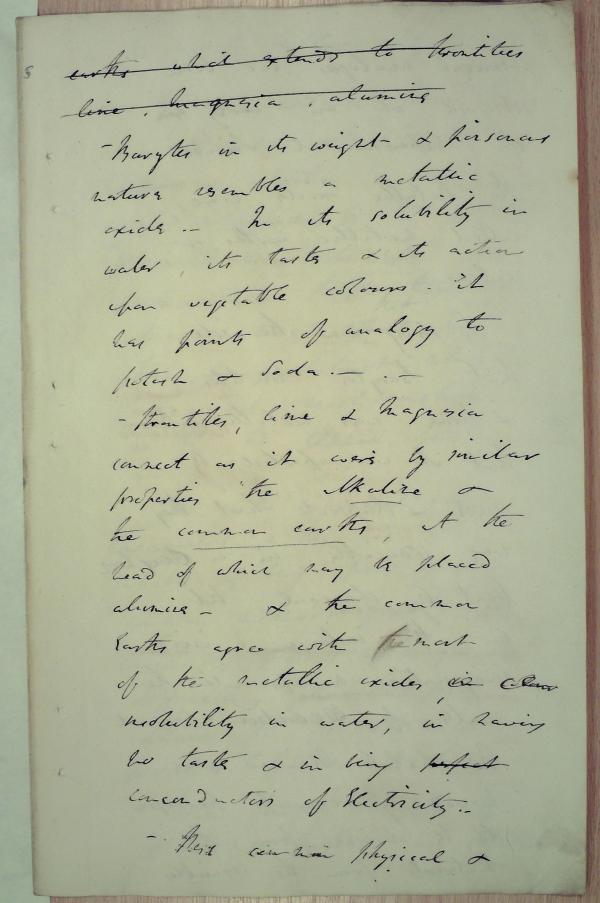 earths which extends to Strontites
lime, magnesia, alumina
- Barytes in its weight & poisonous
nature resembles a metallic
oxide. - In its solubility in
water, its taste & its action
upon vegetable colours. It
has points of analogy to
potash & Soda. - . -
- Strontites, lime & Magnesia
connect as it were by similar
properties the Alkaline &
the common earths, At the
head of which may be placed
alumina - & the common
Earths agree with the most
of the metallic oxides, in
insolubility in water, in having
no taste & in being perfect
nonconductors of Electricity. -
- common physical &